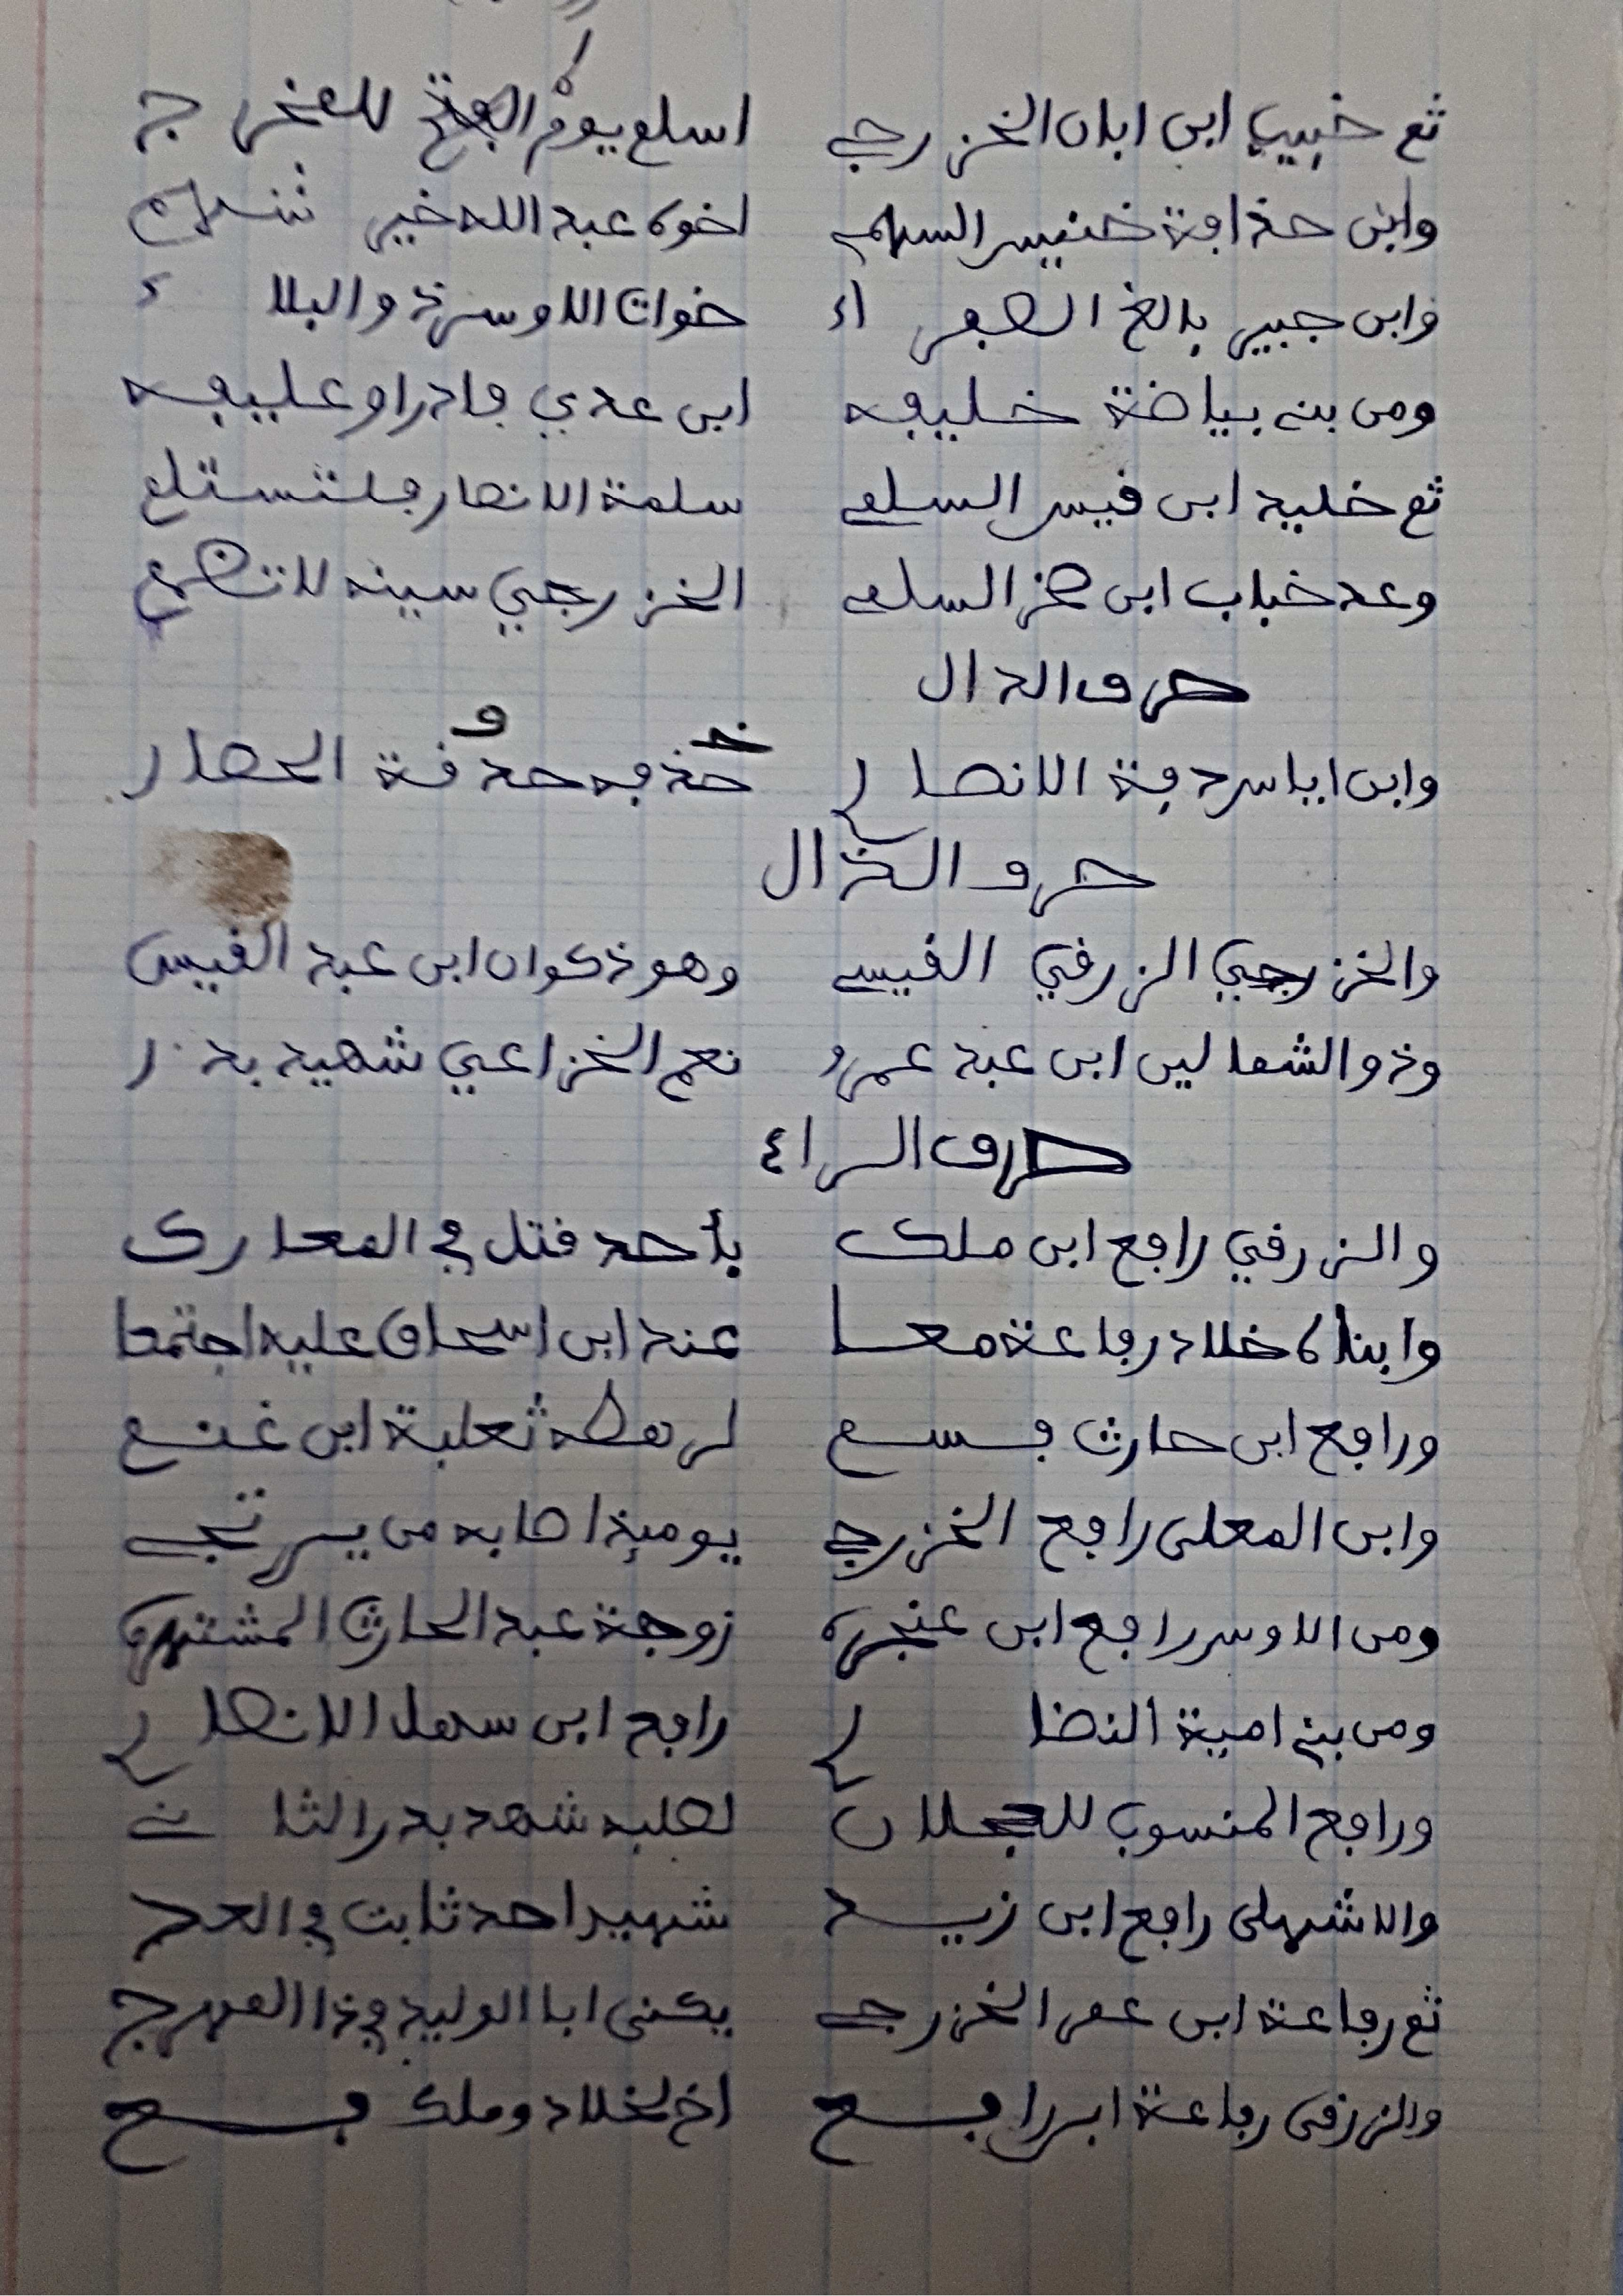 ثم خبيب ابن ابان الخزرجي اسلم يوم للمخرج
وابن حذافة خنيس السهمي اخوه عبد الله خير
وابن جبير بالغ الصفراء خوات الاوسي ذو البلاء
ومن بني بياضة خليفه ابن عدي فادر او عليفه
ثم خليد ابن قيس السلمي سلمة الانصار فلتستلم
وعد خباب ابن السلمي الخزرجي سينه لا تنضم
حرف الدال
وابن اياس ودفة الانصاري خذ فه حدقة الحصار
حرف الذال
والخزرجي الزرقي القيسي وهو ذكوان ابن عبد القيس
وذو الشمالين ابن عبد عمرو نعم الخزاعي شهيد بدر
حرف الراء
والزرقي رافع ابن ملك بأحد قتل في المعارك
وابناه خلاد رفاعة معا عند ابن اسحاق عليه اجتمعا
ورافع ابن حارث فسم لرهطه ثعلبة ابن غنم
وابن المعلى رافع الخزرجي يومئذ اصابه من يرتجي
ومن الاوس رافع ابن عنجره زوجة عبد الحارث المشتهره
ومن بني امية النضاري رافع ابن سهل الانصاري
ورافع المنسوب للعجلان لصلبه شهد بدر الثاني
والاشهلى رافع ابن زيد شهيد احد ثابت في العد
ثم رفاعة ابن عمر الخزرجي يكنى ابا الوليد في ذا المهرج
والزرقى رفاعة ابن رافع اخ لخلاد وملك فع